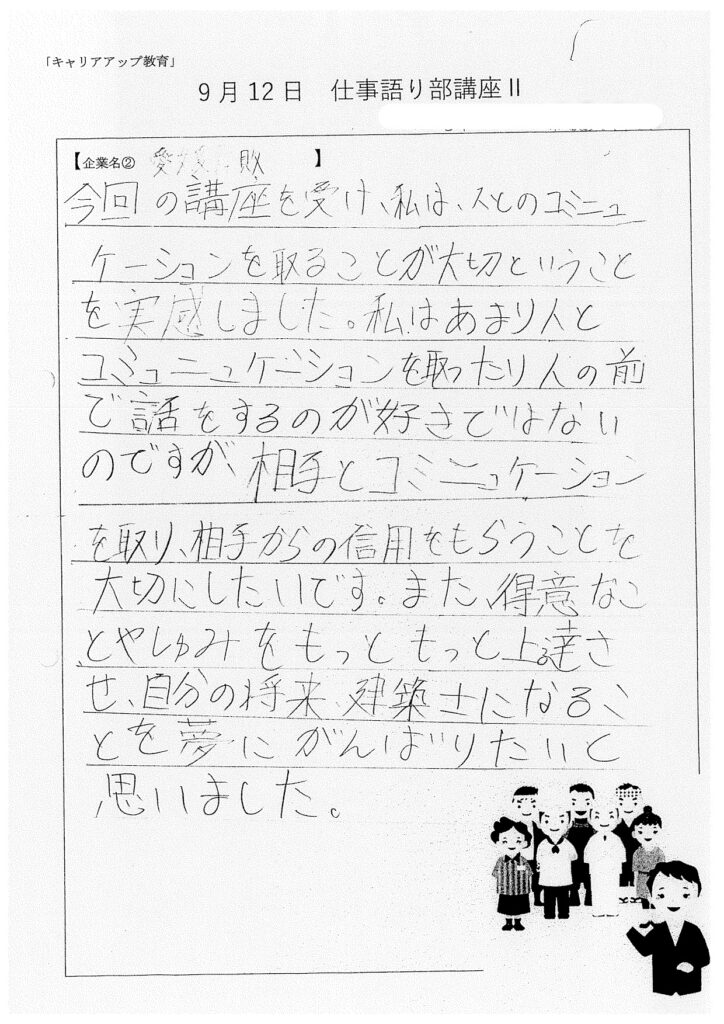 「キャリアアップ教育」
9月12日 仕事語り部講座Ⅱ
【企業名② 愛媛 敗 】
今回の講座を受け、私は、人とのコミニュ
ケーションを取ることが大切ということ
を実感しました。私はあまり人と
コミュニュケーションを取ったり人の前
で話をするのが好きではない
のですが、相手とコミニュケーション
を取り、相手からの信用をもらうことを
大切にしたいです。また、得意なこ
とやしゅみをもっともっと上達さ
せ、自分の将来、建築士になるこ
とを夢にがんばりたいと
思いました。